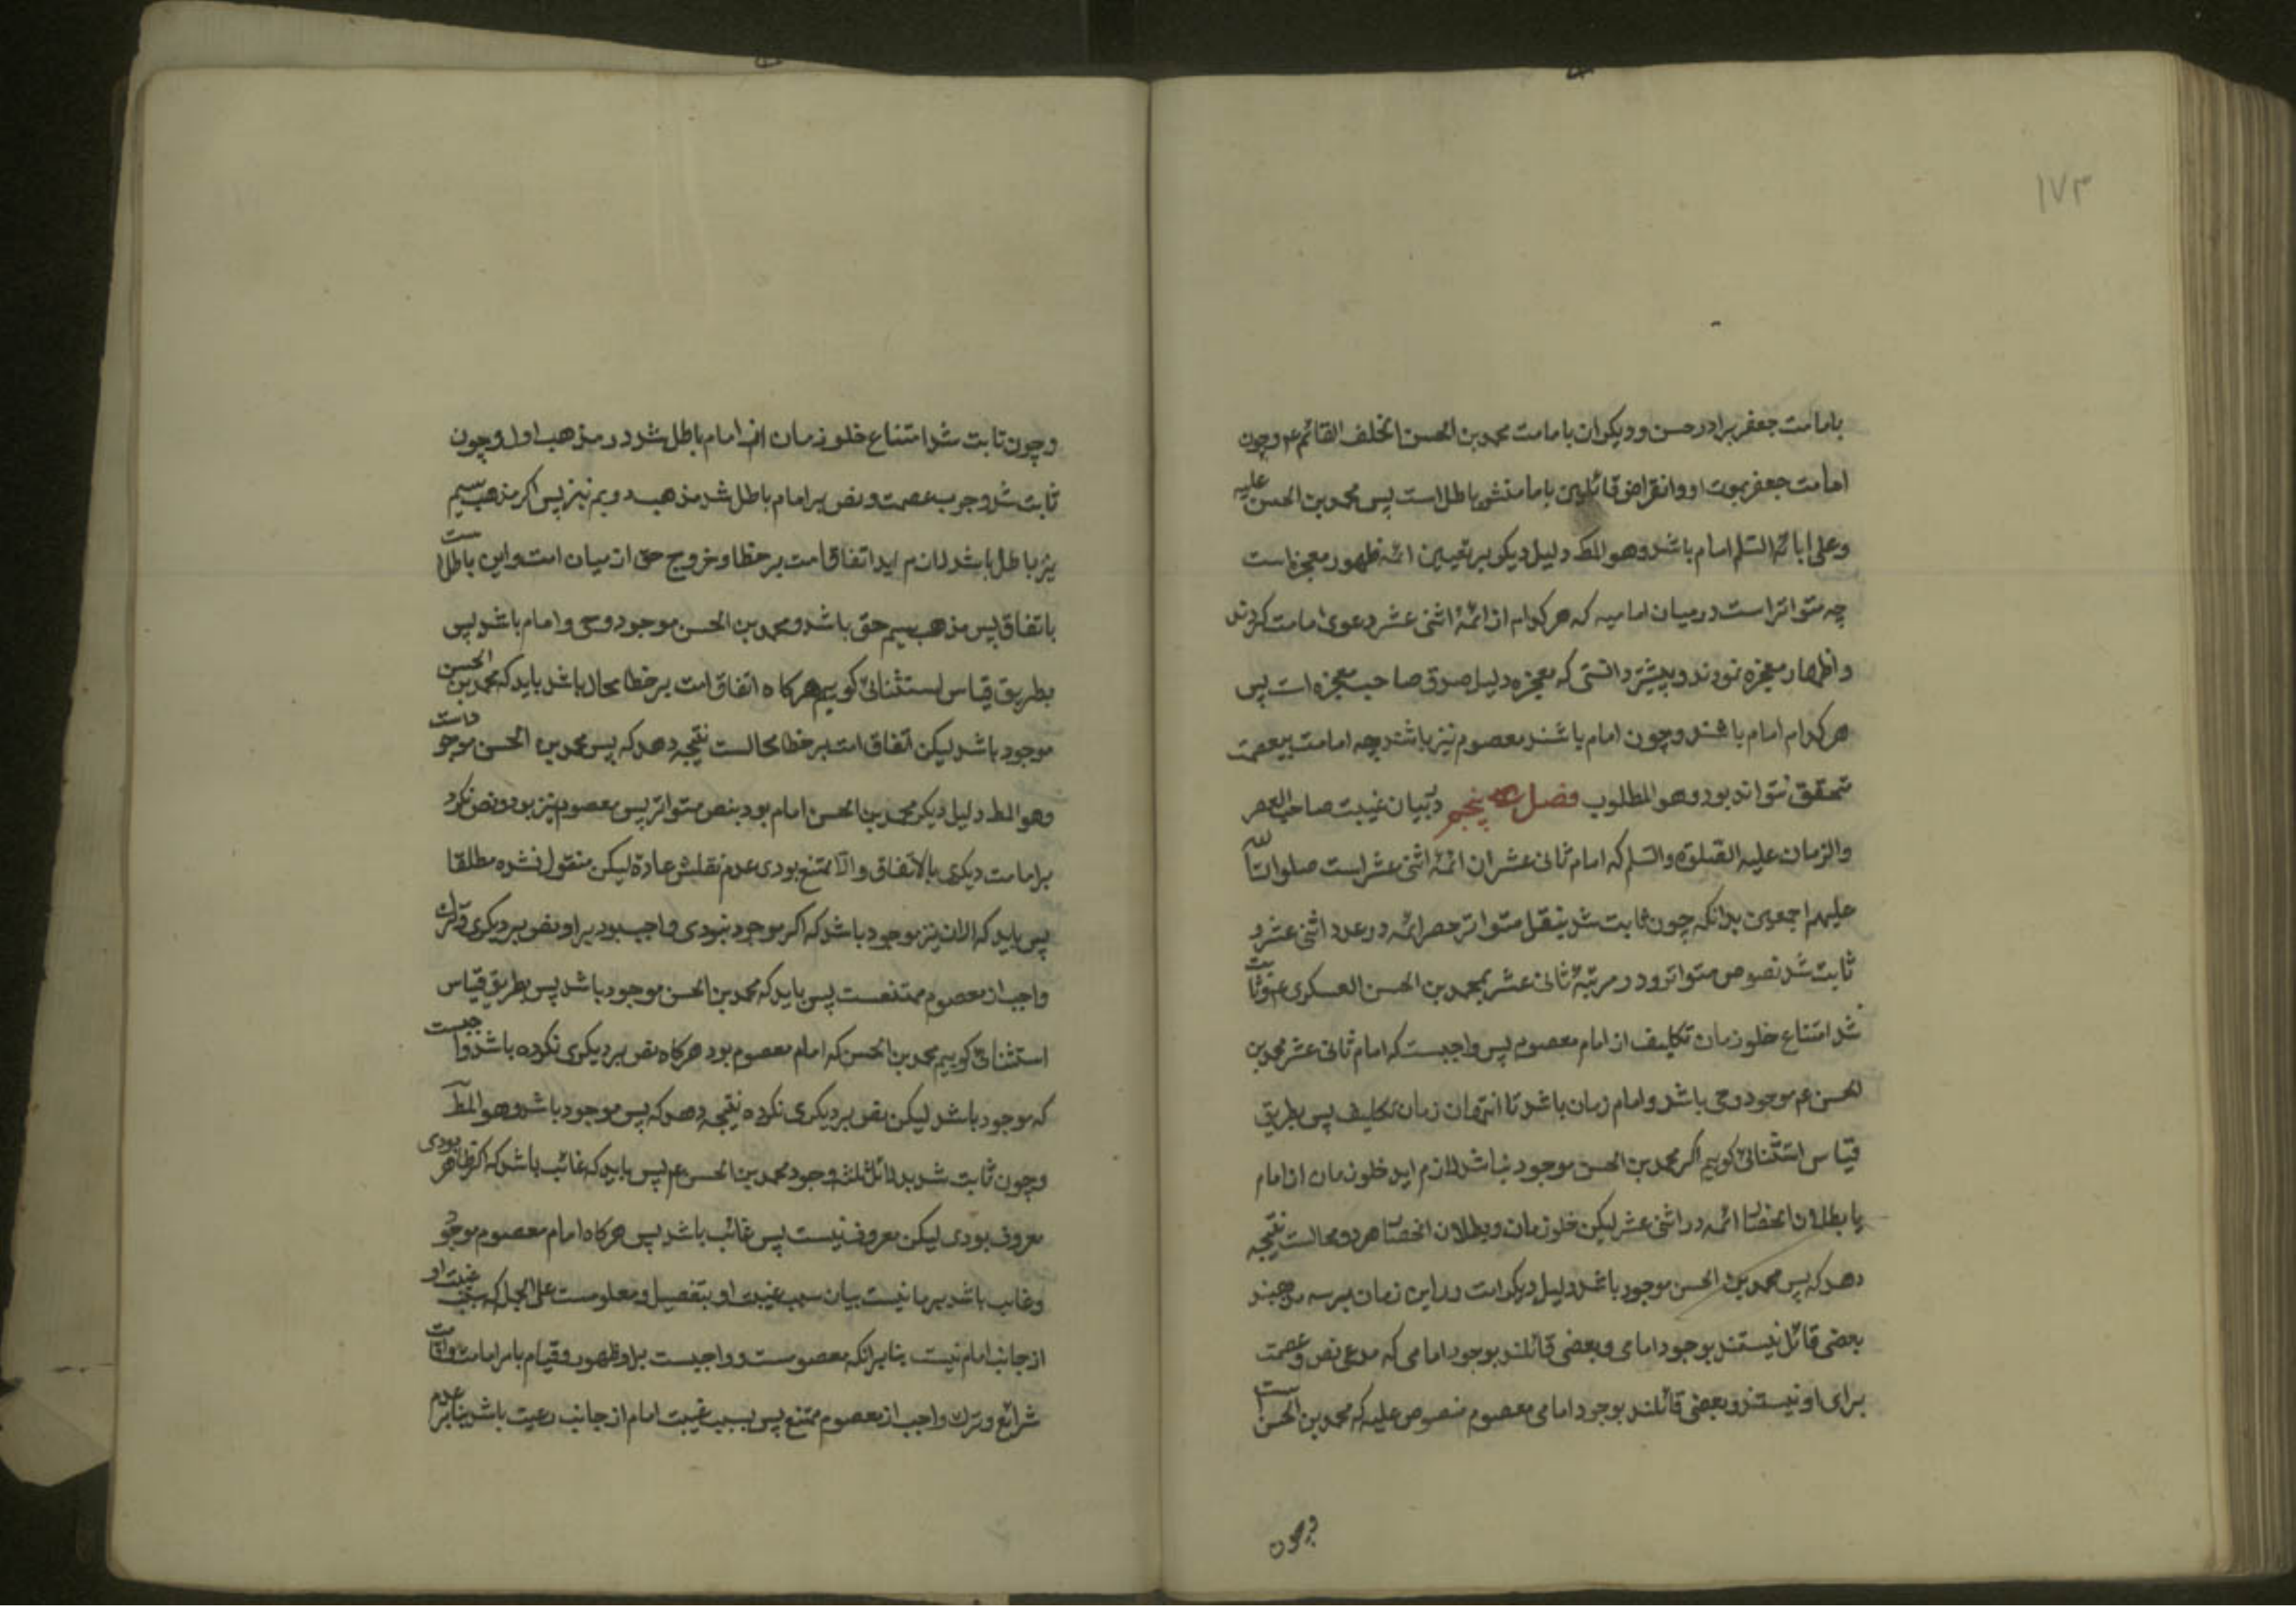 ١٧٣
بامامت جعفر برادر حسن و دیکران بامامت محمد بن الحسن الخلف القائم عم وچون
امامت جعفر بموت او وانقراض قائلین بامامتش باطل است پس محمد بن الحسن علیه
وعلی ابائه السلم امام باشد وهو المط دلیل دیکر بر تعیین ائمه ظهور معجزاست
چه متواتر است در میان امامیه که هر کدام از ائمهٔ اثنی عشر دعوی امامت کردند
واظهار معجزه نمودند و پیشتر دانستی که معجزه دلیل صدق صاحب معجزه است پس
هر کدام امام باشند وچون امام باشند معصوم نیز باشند چه امامت بیعصمت
متحقق نتواند بود وهو المطلوب فصل پنجم در بیان غیبت صاحب العصر
والزمان علیه الصلوة والسلم که امام ثانی عشر از ائمهٔ اثنی عشر است صلوات الله
علیهم اجمعین بدانکه چون ثابت شد بنقل متواتر حصر ائمه در عدد اثنی عشر و
ثابت شد نصوص متواتره در مرتبهٔ ثانی عشر بمحمد بن الحسن العسکری عم وثابت
شد امتناع خلو زمان تکلیف از امام معصوم پس واجبست که امام ثانی عشر محمد بن
الحسن عم موجود وحی باشد وامام زمان باشد تا انتهای زمان تکلیف پس بطریق
قیاس استثنائی کوییم اکر محمد بن الحسن موجود نباشد لازم اید خلو زمان از امام
یا بطلان انحصار ائمه در اثنی عشر لیکن خلو زمان وبطلان انحصار هر دو محالست نتیجه
دهد که پس محمد بن الحسن موجود باشد دلیل دیکر امت در این زمان بر سه مذهبند
بعضی قائل نیستند بوجود امامی وبعضی قائلند بوجود امامی که مدعی نص وعصمت
برای او نیستند وبعضی قائلند بوجود امامی معصوم منصوص علیه که محمد بن الحسن است
وچون
وچون ثابت شد امتناع خلو زمان از امام باطل شد در مذهب اول وچون
ثابت شد وجوب عصمت ونص بر امام باطل شد مذهب دویم نیز پس اکر مذهب سیم
نیز باطل باشد لازم اید اتفاق امت بر خطا وخروج حق از میان امت واین باطل است
باتفاق پس مذهب سیم حق باشد ومحمد بن الحسن موجود وحی وامام باشد پس
بطریق قیاس استثنائی کوییم هرکاه اتفاق امت بر خطا محال باشد باید که محمد بن الحسن
موجود باشد لیکن اتفاق امت بر خطا محالست نتیجه دهد که پس محمد بن الحسن موجود است
وهو المط دلیل دیکر محمد بن الحسن امام بود بنص متواتر پس معصوم نیز بود ونص نکرد
بر امامت دیکری بالاتفاق والا ممتنع بودی عدم نقلش عادة لیکن منقول نشده مطلقا
پس باید که الان نیز موجود باشد که اکر موجود نبودی واجب بود بر او نص بر دیکری وترک
واجب از معصوم ممتنعست پس باید که محمد بن الحسن موجود باشد پس بطریق قیاس
استثنائی کوییم محمد بن الحسن که امام معصوم بود هرکاه نص بر دیکری نکرده باشد واجبست
که موجود باشد لیکن نص بر دیکری نکرده نتیجه دهد که پس موجود باشد وهو المط
وچون ثابت شد بدلائل ثلثه وجود محمد بن الحسن عم پس باید که غائب باشد که اکر ظاهر بودی
معروف بودی لیکن معروف نیست پس غائب باشد پس هرکاه امام معصوم موجود
وغایب باشد بر ما نیست بیان سبب غیبت او بتفصیل ومعلومست علی الجمله که سبب غیبت او
از جانب امام نیست بنابرانکه معصومست وواجبست بر او ظهور وقیام بامر امامت واقامت
شرائع وترک واجب از معصوم ممتنع پس سبب غیبت امام از جانب رعیت باشد بنابر عدم